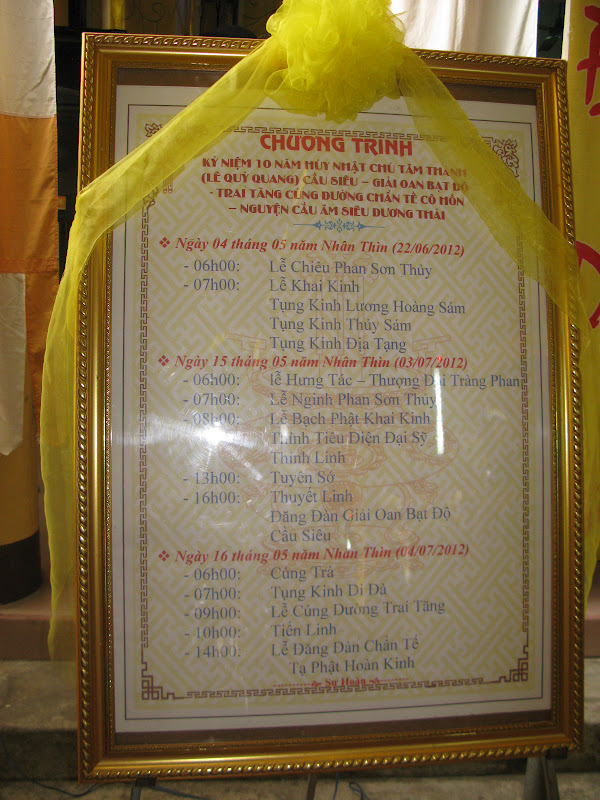 CHƯƠNG TRÌNH
KỶ NIỆM 10 NĂM HÚY NHẬT CHÚ TÂM THÀNH
(LÊ QUÝ QUANG) CẦU SIÊU – GIẢI OAN BẠT ĐỘ
- TRAI TĂNG CÚNG DƯỜNG CHẨN TẾ CÔ HỒN
– NGUYỆN CẦU ÂM SIÊU DƯƠNG THÁI
❖ Ngày 04 tháng 05 năm Nhân Thìn (22/06/2012)
- 06h00: Lễ Chiêu Phan Sơn Thủy
- 07h00: Lễ Khai Kinh
Tụng Kinh Lương Hoàng Sám
Tụng Kinh Thủy Sám
Tụng Kinh Địa Tạng
❖ Ngày 15 tháng 05 năm Nhân Thìn (03/07/2012)
- 06h00: lễ Hưng Tác – Thượng Đại Tràng Phan
- 07h00: Lễ Nghinh Phan Sơn Thủy
- 08h00: Lễ Bạch Phật Khai Kinh
Thỉnh Tiêu Diện Đại Sỹ
Thỉnh Linh
- 13h00: Tuyên Sớ
- 16h00: Thuyết Linh
Đăng Đàn Giải Oan Bạt Độ
Cầu Siêu
❖ Ngày 16 tháng 05 năm Nhân Thìn (04/07/2012)
- 06h00: Cúng Trà
- 07h00: Tụng Kinh Di Đà
- 09h00: Lễ Cúng Dường Trai Tăng
- 10h00: Tiến Linh
- 14h00: Lễ Đăng Đàn Chẩn Tế
Tạ Phật Hoàn Kinh
Sự Hoàn